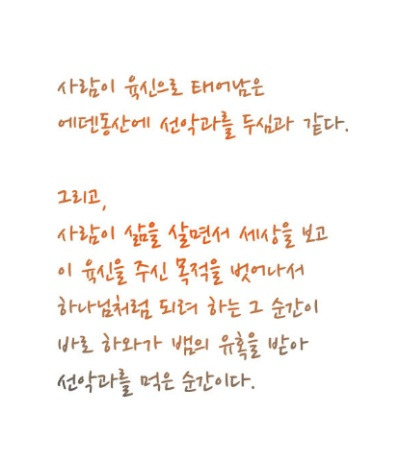 사람이 육신으로 태어남은
에덴동산에 선악과를 두심과 같다.
그리고,
사람이 삶을 살면서 세상을 보고
이 육신을 주신 목적을 벗어나서
하나님처럼 되려 하는 그 순간이
바로 하와가 뱀의 유혹을 받아
선악과를 먹은 순간이다.